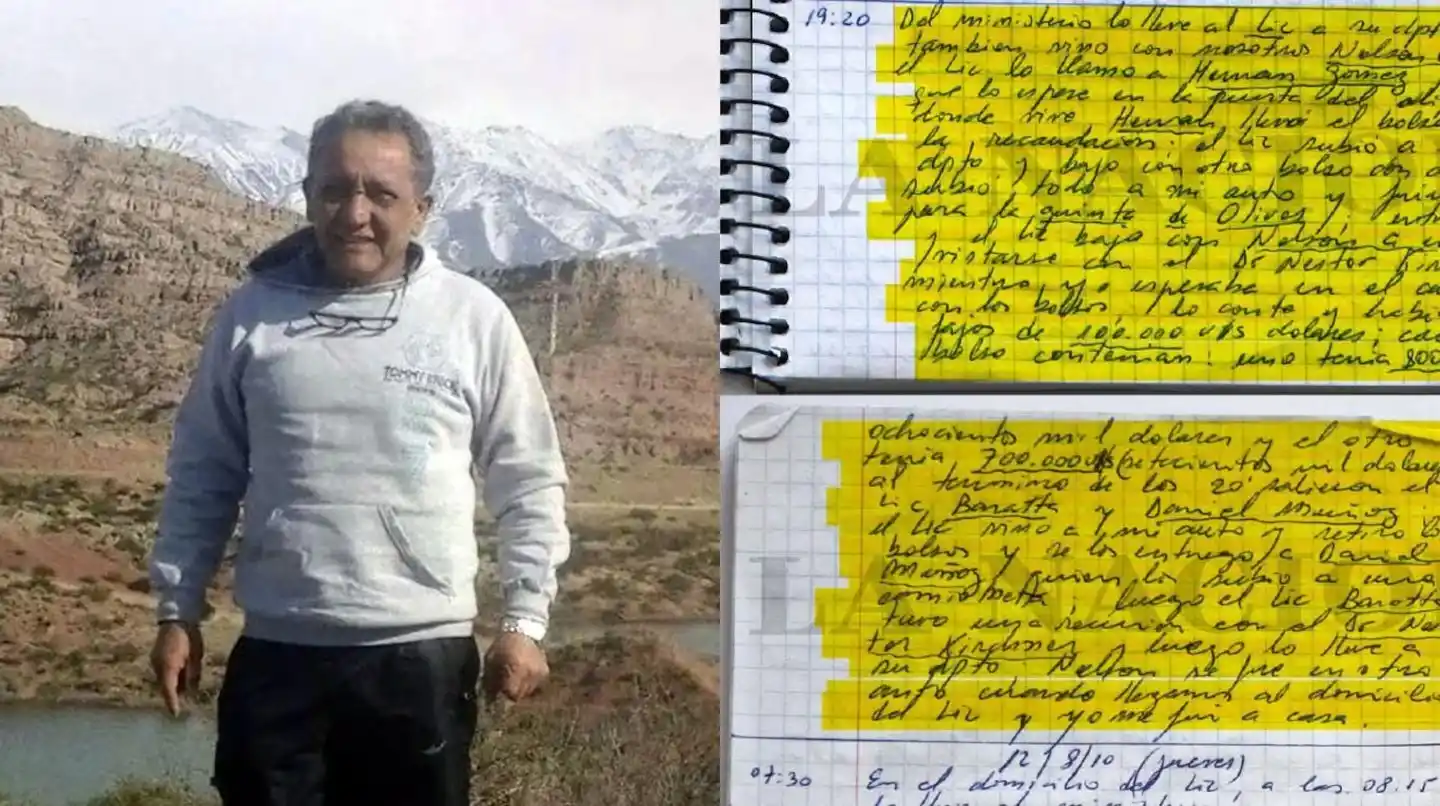 TOMMY
19:20 Del ministerio lo lleve al Lic a su dpt
tambien vino con nosotros Nelson
el Lic lo llamo a Hernan Gomez
que lo espere en la puerta del
donde vive Hernan llevo el bols
la recaudacion: el Lic subio a
dpto y bajo con otro bolso
subio todo a mi auto y
para la quinta de Olivos;
el Lic bajo con Nelson a
con el Dr Nestor
mientras yo esperaba en el
con los bolsos, lo conte y habi
fajos de 100.000 U$S dolares; ca
bolso contenian: uno tenia 800
LA NACIO
ochocientos mil dolares y el otro
tenia 700.000 (setecientos mil dolare
al termino de los 20' salieron el
Lic Baratta y Daniel Muñoz;
el Lic vino a mi auto y retiro
bolsos y se los entrego a Daniel
Muñoz quien los subio a una
camioneta, luego el Lic Baratta
tuvo una reunion con el Dr Nes
tor Kirchner y luego lo lleve a
su dpto Nelson se fue en otro
auto cuando llegamos al domicilio
del Lic y yo me fui a casa.
LA NACIO
12/8/10 (jueves)
07:30 En el domicilio del Lic, a las 08.15